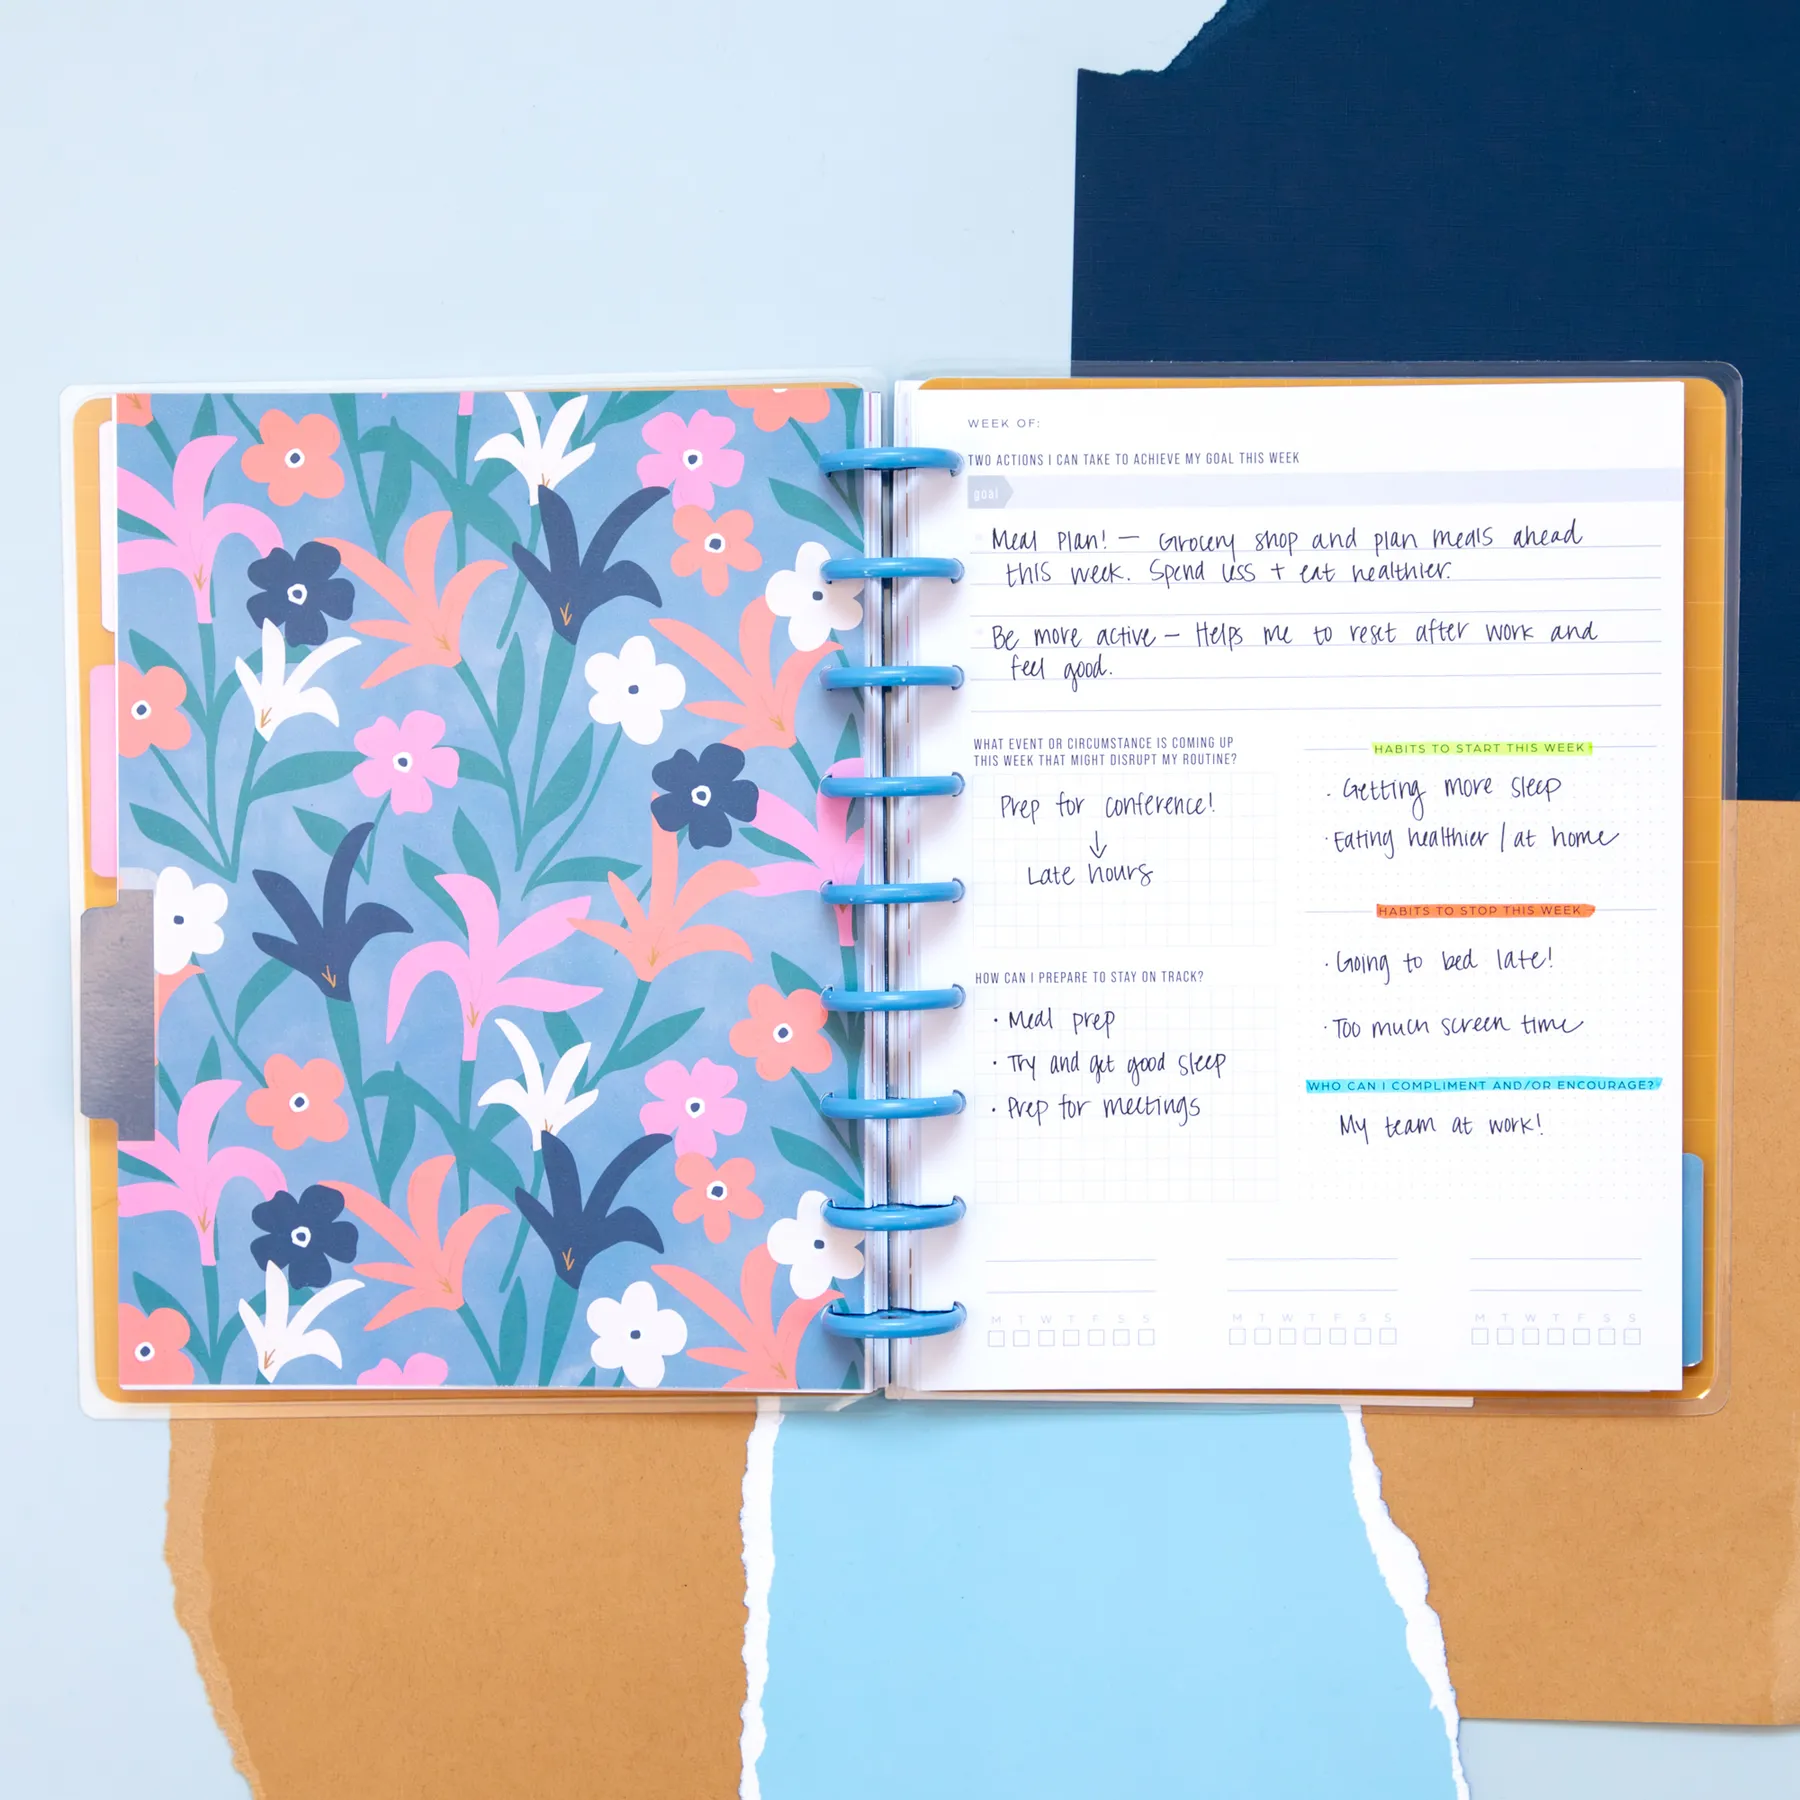 WEEK OF:
TWO ACTIONS I CAN TAKE TO ACHIEVE MY GOAL THIS WEEK
goal
Meal Plan! — Grocery shop and plan meals ahead
this week. Spend less + eat healthier.
Be more active — Helps me to reset after work and
feel good.
WHAT EVENT OR CIRCUMSTANCE IS COMING UP
THIS WEEK THAT MIGHT DISRUPT MY ROUTINE?
Prep for conference!
↓
Late hours
HOW CAN I PREPARE TO STAY ON TRACK?
• Meal prep
• Try and get good sleep
• Prep for meetings
HABITS TO START THIS WEEK
• Getting more sleep
• Eating healthier / at home
HABITS TO STOP THIS WEEK
• Going to bed late!
• Too much screen time
WHO CAN I COMPLIMENT AND/OR ENCOURAGE?
My team at work!
M T W T F S S
M T W T F S S
M T W T F S S